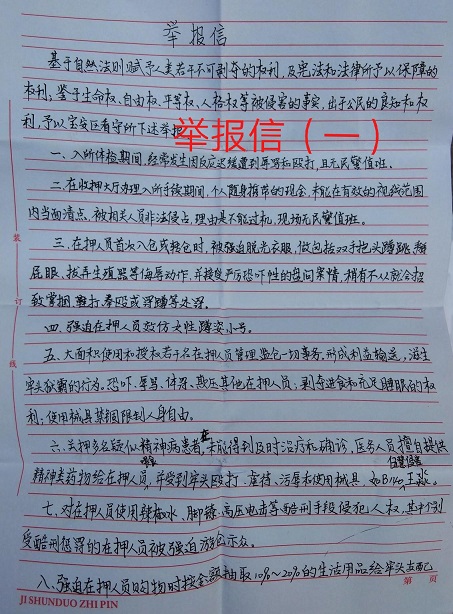 举报信
基于自然法则赋予人类若干不可剥夺的权利,及宪法和法律所予以保障的
本利;鉴于生命权、自由权、平等权、人格权等被侵害的事实,出于公民的良知和权
利,予以宝安区看守所下述举报
举报信(一)
一、入所体检期间,经常发生因反应迟缓遭到辱骂和殴打,且无民警值班。
二、在收押大厅办理入所手续期间,个人随身携带的现金,未能在有效的视线范围
内当面清点,被相关人员非法侵占,理由是不能过机,现场无民警值班。
三、在押人员首次入仓或转仓时,被强迫脱光衣服,做包括双手抱头蹲跳、掰
屁眼、拔弄生殖器等侮辱动作,并接受严厉恐吓性的盘问案情,稍有不从就会招
致掌掴、殴打、拳殴或浮蹲等处罚。
四、强迫在押人员效仿女性蹲姿小号。
五、大面积使用和授权若干名在押人员管理监仓一切事务,形成利益输送,滋生
牢头狱霸的行为。恐吓、辱骂、体罚、欺压其他在押人员;剥夺进食和充足睡眠的权
利;使用械具禁锢限制人身自由。
六、关押多名疑似精神病患者,未能得到及时治疗和确诊,医务人员擅自提供
精神类药物给在押人员,并受到牢头殴打、虐待、污辱和使用械具,如B仓
七、对在押人员使用辣椒水、脚镣、高压电击等酷刑手段侵犯人权,其中个别
受酷刑惩罚的在押人员被强迫游仓示众。
八、强迫在押人员购物时按金额抽取10%~20%的生活用品给牢头支配
装
订
线
JI SHUNDUO ZHI PIN
第 页